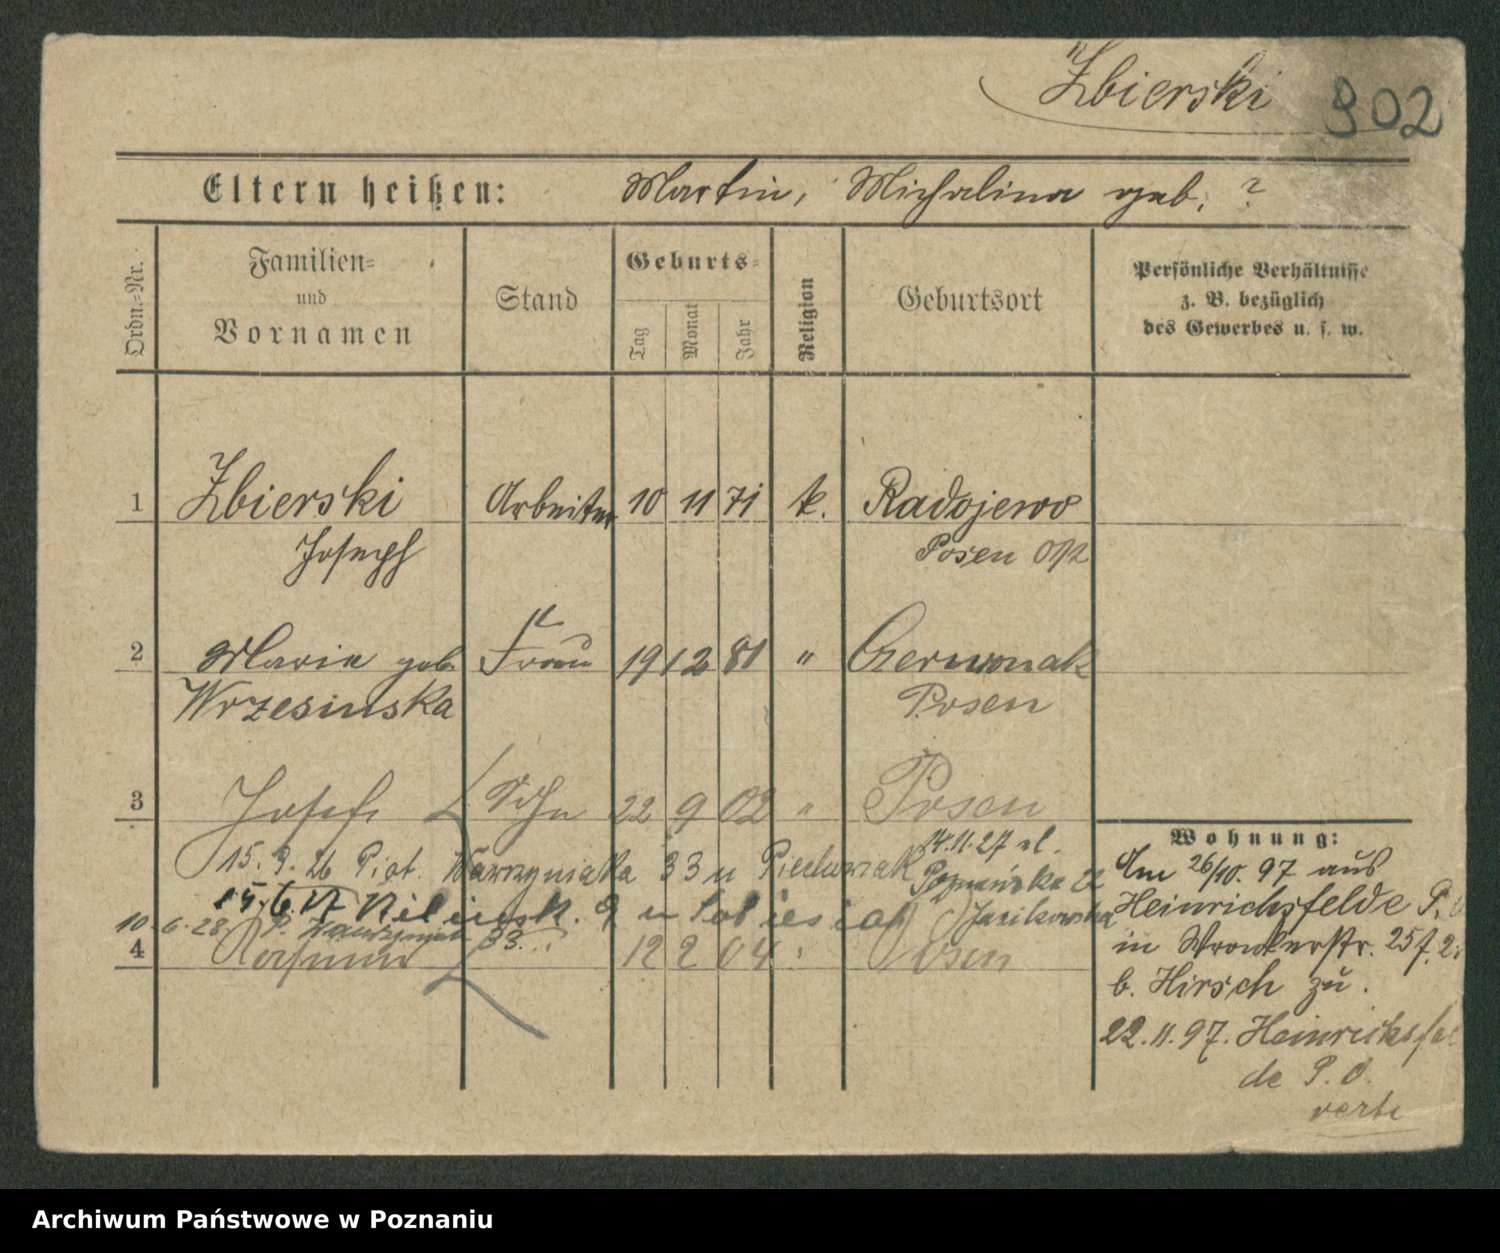 Zbierski 902
Eltern heißen: Martin, Michalina geb. ?
Ordn.-Nr.
Familien-
und
Vornamen
Stand
Geburts-
Tag
Monat
Jahr
Religion
Geburtsort
Persönliche Verhältnisse
z. B. bezüglich
des Gewerbes u. s. w.
1 Zbierski Arbeiter 10 11 71 k. Radojewo
Joseph Posen O/P
2 Marie geb. Frau 19 12 81 " Czerwonak
Wrzesinska Posen
3 Josef Sohn 22 9 02 " Posen
15. 9. 26 Piot. Wawrzyniaka 33 u Piechowiak
14.11.27 ul.
Poznańska 22
u Sobiesiak Janikowska
10. 6. 28. P. Wawrzyniak 33
4 12 2 04 Posen
Wohnung:
Am 26/10. 97 aus
Heinrichsfelde P.
in Wronkerstr. 25
b. Hirsch zu.
22. 11. 97. Heinrichsfel
de P. O.
verte
Archiwum Państwowe w Poznaniu